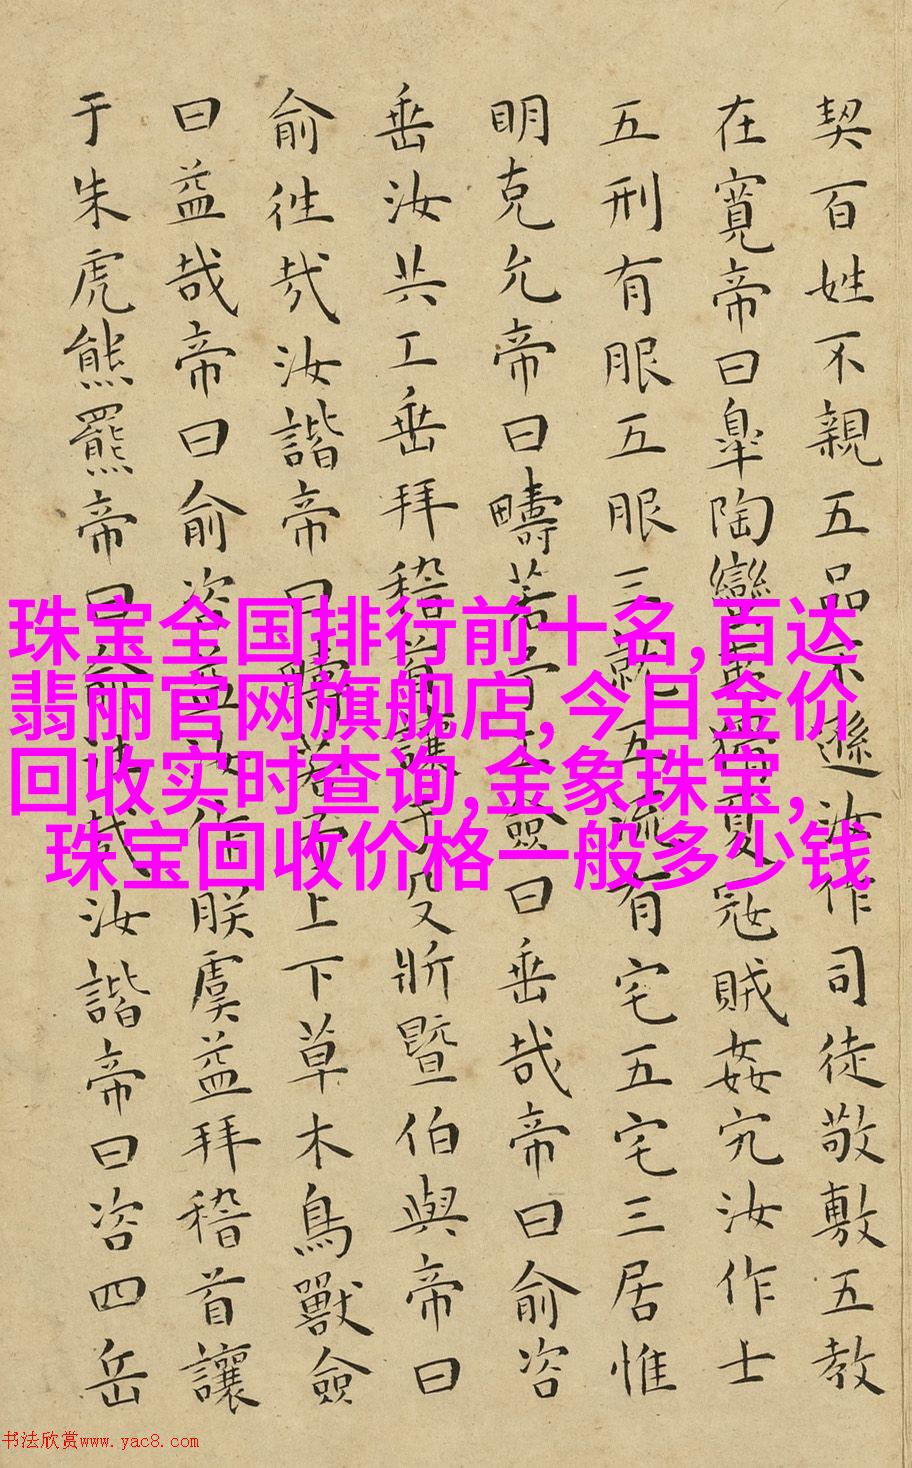 契百姓不親五品不遜汝作司徒敬敷五教
在寬帝曰皐陶蠻夷猾夏寇賊姦宄汝作士
五刑有服五服三就五流有宅五宅三居惟
明克允帝曰疇若予工僉曰垂哉帝曰俞咨
垂汝共工垂拜稽首讓于殳斨暨伯與帝曰
俞往哉汝諧帝曰疇若予上下草木鳥獸僉
曰益哉帝曰俞咨益汝作朕虞益拜稽首讓
于朱虎熊羆帝曰俞往哉汝諧帝曰咨四岳
珠宝全国排行前十名,百达
翡丽官网旗舰店,今日金价
回收实时查询,金象珠宝,
珠宝回收价格一般多少钱
书法欣赏www.yac8.com